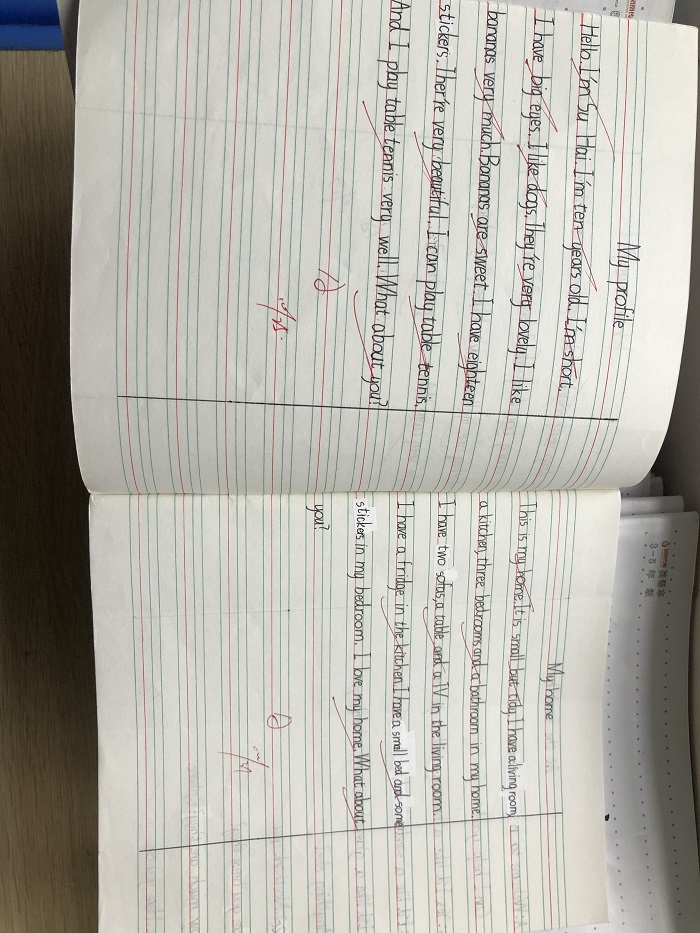 My profile
Hello. I'm Su Hai. I'm ten years old. I'm short.
I have big eyes. I like dogs. They're very lovely. I like
bananas very much. Bananas are sweet. I have eighteen
stickers. Ther're very beautiful. I can play table tennis.
And I play table tennis very well. What about you?
My home
This is my home. It is small but tidy. I have a living room,
a kitchen, three bedrooms and a bathroom in my home.
I have two sofas, a table and a TV in the living room.
I have a fridge in the kitchen. I have a small bed and some
stickers in my bedroom. I love my home. What about
you?